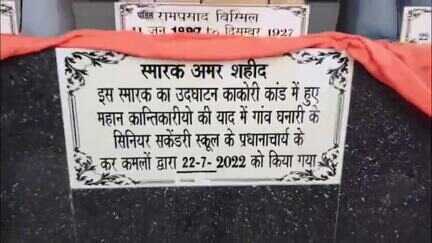 पंडित रामप्रसाद विस्मिल
11 जून 1897 to दिसम्बर 1927
स्मारक अमर शहीद
इस स्मारक का उदघाटन काकोरी कांड में हुए
महान कान्तिकारीयो की याद में गांव घनारी के
सिनियर सकेंडरी स्कूल के प्रधानाचार्य के
कर कमलों द्वारा 22-7- 2022 को किया गया